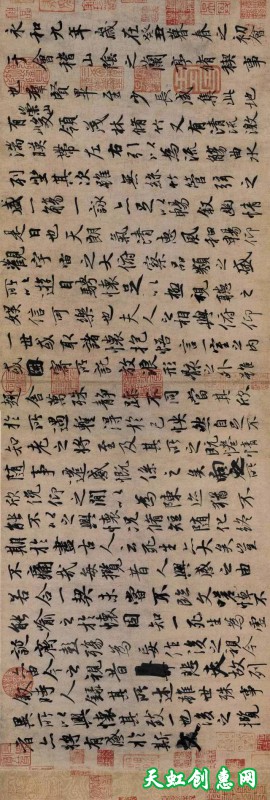 永和九年歲在癸丑暮春之初會
于會稽山陰之蘭亭脩稧事
也群賢畢至少長咸集此地
有崇山峻領茂林脩竹又有清流激
湍暎帶左右引以為流觴曲水
列坐其次雖無絲竹管弦之
盛一觴一詠亦足以暢敘幽情
是日也天朗氣清惠風和暢仰
觀宇宙之大俯察品類之盛
所以遊目騁懷足以極視聽之
娛信可樂也夫人之相與俯仰
一世或取諸懷抱悟言一室之內
或因寄所託放浪形骸之外雖
趣舍萬殊靜躁不同當其欣
於所遇暫得於己怏然自足不
知老之將至及其所之既惓情
隨事遷感慨係之矣向之所
欣俛仰之閒以為陳迹猶不
能不以之興懷況脩短隨化終
期於盡古人云死生亦大矣豈
不痛哉每攬昔人興感之由
若合一契未嘗不臨文嗟悼不
能喻之於懷固知一死生為虛
誕齊彭殤為妄作後之視今
亦由今之視昔悲夫故列
敘時人錄其所述雖世殊事
異所以興懷其致一也後之攬
者亦將有感於斯文
天虹创惠网
www.thch.net